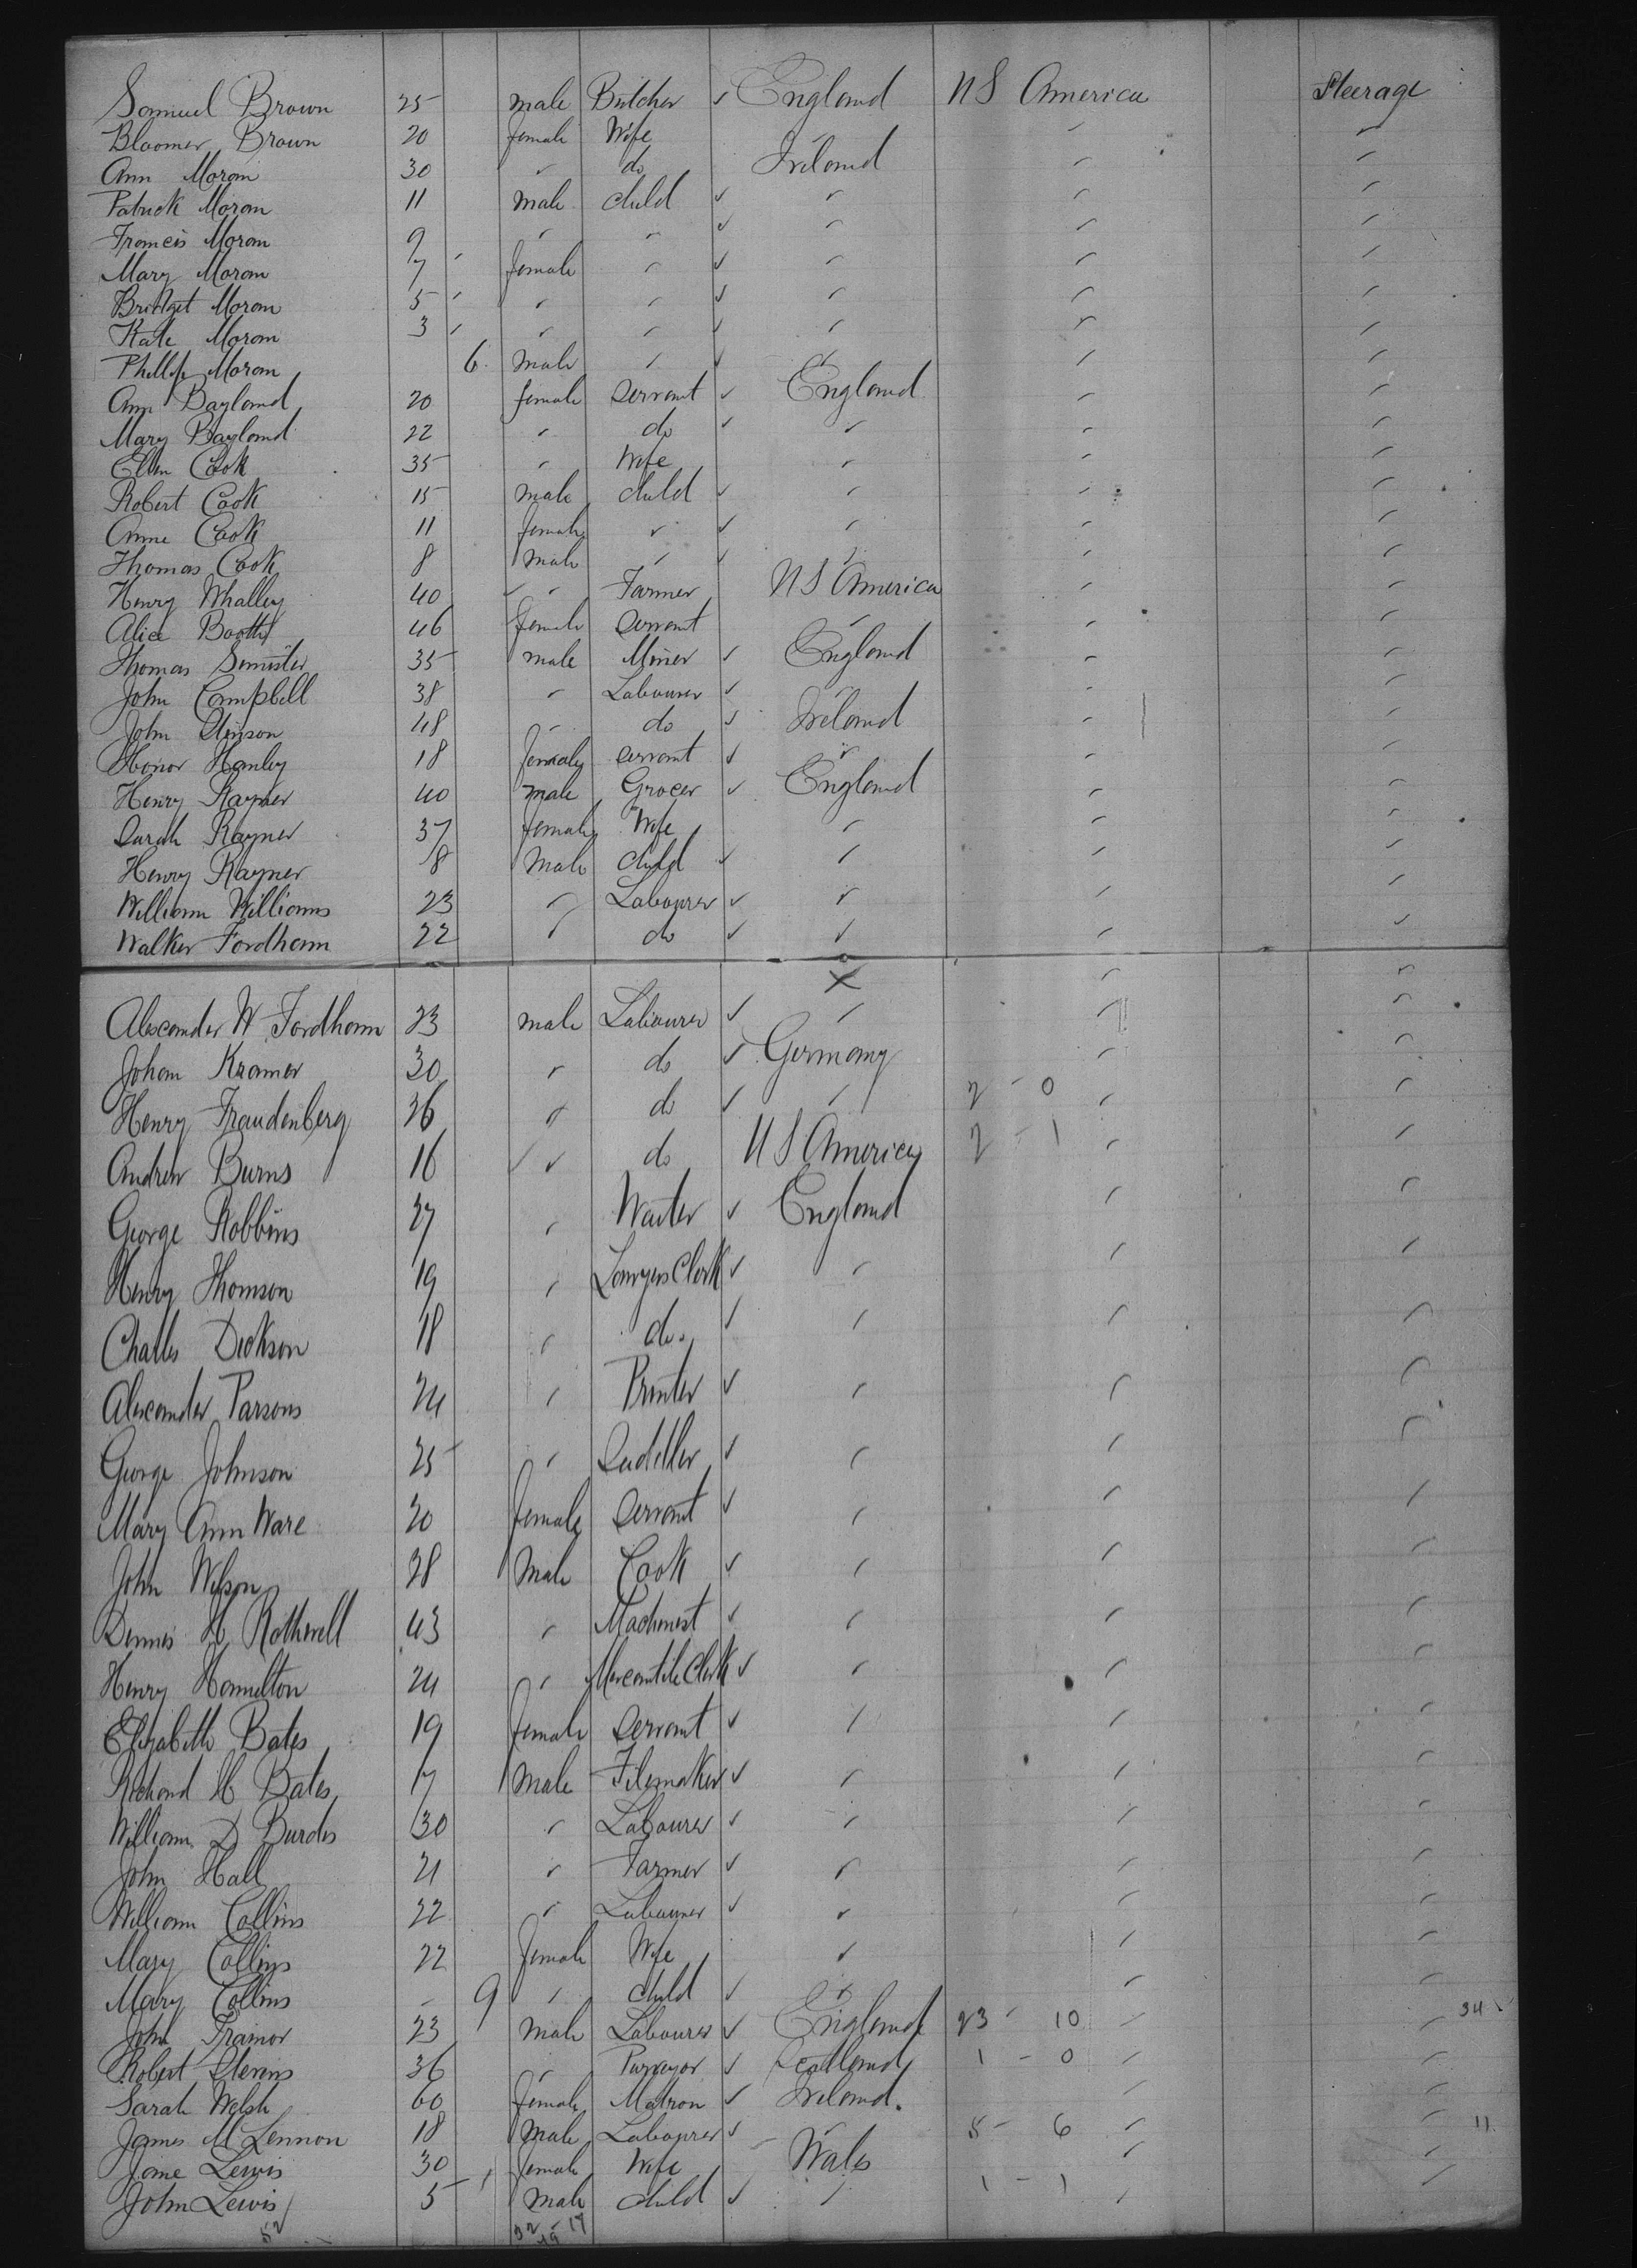 Samuel Brown 25 male Butcher ✓ England US America Steerage
Bloomer Brown 20 female Wife " " "
Ann Moran 30 " do Ireland " "
Patrick Moran 11 male child ✓ " " "
Francis Moran 9 " " ✓ " " "
Mary Moran 7 female " ✓ " " "
Bridget Moran 5 " " ✓ " " "
Kate Moran 3 " " ✓ " " "
Phillip Moran 6 male " ✓ " " "
Ann Bayland 20 female Servant ✓ England " "
Mary Bayland 22 " do ✓ " " "
Ellen Cook 35 " Wife " " "
Robert Cook 15 male child ✓ " " "
Anne Cook 11 female " ✓ " " "
Thomas Cook 8 male " ✓ " " "
Henry Whalley 40 " Farmer US America " "
Alice Booth 46 female Servant " " "
Thomas 35 male Miner ✓ England " "
John Campbell 38 " Labourer ✓ " " "
John 48 " do ✓ Ireland " "
Honor Hanley 18 female servant ✓ " " "
Henry Rayner 40 male Grocer ✓ England " "
Sarah Rayner 37 female Wife " " "
Henry Rayner 8 male child ✓ " " "
William Williams 23 " Labourer ✓ " " "
Walker Fordham 22 " do ✓ " " "
X
Alexander W Fordham 23 male Labourer ✓ " " "
Johan Kramer 30 " do ✓ Germany " "
Henry Fraudenberg 36 " do ✓ " 2 - 0 " "
Andrew Burns 16 " do US America 2 - 1 " "
George Robbins 27 " Waiter ✓ England " "
Henry Thomson 19 " Lawyers Clerk ✓ " " "
Charles Dickson 18 " do. ✓ " " "
Alexander Parsons 24 " Printer ✓ " " "
George Johnson 25 " Saddler ✓ " " "
Mary Ann Ware 20 female Servant ✓ " " "
John Wilson 28 male Cook ✓ " " "
Dennis H Rothwell 43 " Machinest ✓ " " "
Henry Hamilton 24 " Mercantile Clerk ✓ " " "
Elizabeth Bates 19 female Servant ✓ " " "
Richard H Bates 17 male Filemaker ✓ " " "
William D Burdes 30 " Labourer ✓ " " "
John Hall 21 " Farmer ✓ " " "
William Collins 22 " Labourer ✓ " " "
Mary Collins 22 female Wife " " "
Mary Collins - 9 " child ✓ " " "
John Trainor 23 male Labourer ✓ England 23 - 10 " " 34
Robert Stevens 36 " Purveyor ✓ Scotland 1 - 0 " "
Sarah Welsh 60 female Matron ✓ Ireland. " "
James McLennon 18 male Labourer ✓ " 5 - 6 " " 11
Jane Lewis 30 female Wife Wales " "
John Lewis 5 male child ✓ " 1 - 1 " "
52 32 - 17
19